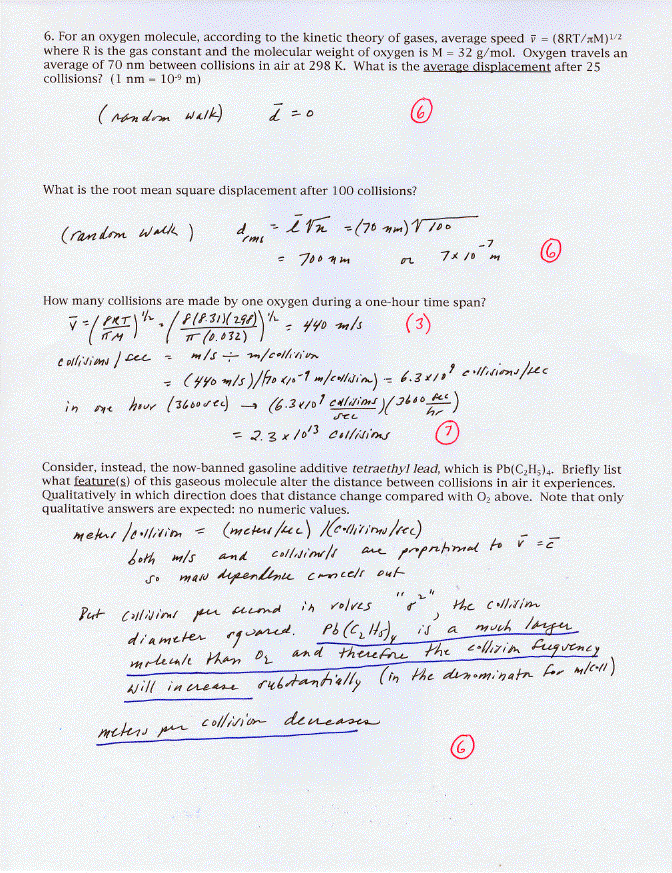 6. For an oxygen molecule, according to the kinetic theory of gases, average speed v̄ = (8RT/πM)^1/2
where R is the gas constant and the molecular weight of oxygen is M = 32 g/mol. Oxygen travels an
average of 70 nm between collisions in air at 298 K. What is the average displacement after 25
collisions? (1 nm = 10⁻⁹ m)
(random walk) d̄ = 0 6
What is the root mean square displacement after 100 collisions?
(random walk) d_rms = l̄ √n = (70 nm) √100
= 700 nm or 7 x 10⁻⁷ m 6
How many collisions are made by one oxygen during a one-hour time span?
v̄ = (8RT/πM)^1/2 = (8(8.31)(298)/π(0.032))^1/2 = 440 m/s (3)
collisions/sec = m/s ÷ m/collision
= (440 m/s)/(70 x10⁻⁹ m/collision) = 6.3 x 10⁹ collisions/sec
in one hour (3600 sec) → (6.3 x 10⁹ collisions/sec)(3600 sec/hr)
= 2.3 x 10¹³ collisions 7
Consider, instead, the now-banned gasoline additive tetraethyl lead, which is Pb(C₂H₅)₄. Briefly list
what feature(s) of this gaseous molecule alter the distance between collisions in air it experiences.
Qualitatively in which direction does that distance change compared with O₂ above. Note that only
qualitative answers are expected: no numeric values.
meters/collision = (meters/sec)/(collisions/sec)
both m/s and collisions/s are proportional to v̄ = c̄
so mass dependence cancels out
But collisions per second involves "σ²", the collision
diameter squared. Pb(C₂H₅)₄ is a much larger
molecule than O₂ and therefore the collision frequency
will increase substantially (in the denominator for m/coll)
meters per collision decreases
6